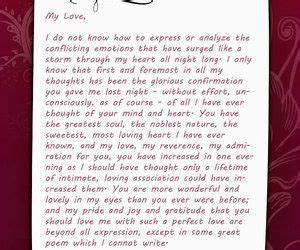 My Love,
I do not know how to express or analyze the
conflicting emotions that have surged like a
storm through my heart all night long. I only
know that first and foremost in all my
thoughts has been the glorious confirmation
you gave me last night - without effort, un-
consciously, as of course - of all I have ever
thought of your mind and heart. You have
the greatest soul, the noblest nature, the
sweetest, most loving heart I have ever
known, and my love, my reverence, my admi-
ration for you, you have increased in one eve-
ning as I should have thought only a lifetime
of intimate, loving association could have in-
creased them. You are more wonderful and
lovely in my eyes than you ever were before;
and my pride and joy and gratitude that you
should love me with such a perfect love are
beyond all expression, except in some great
poem which I cannot write.